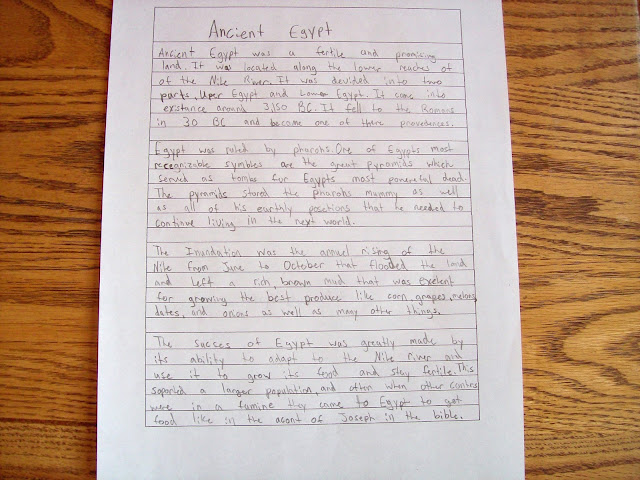 Ancient Egypt
Ancient Egypt was a fertile and promising
land. It was located along the lower reaches of
of the Nile River. It was devided into two
parts, Uper Egypt and Lower Egypt. It came into
existance around 3,150 BC. It fell to the Romans
in 30 BC and become one of there provedences.
Egypt was ruled by pharohs. One of Egypts most
recegnizable symbles are the great pyramids which
served as tombs for Egypts most powereful dead.
The pyramids stored the pharohs mummy as well
as all of his earthly posetions that he needed to
continue living in the next world.
The Inundation was the annuel rising of the
Nile from June to October that flooded the land
and left a rich, brown mud that was exelent
for growing the best produce like corn, grapes, melons,
dates, and onions as well as many other things.
The succes of Egypt was greatly made by
its ability to adapt to the Nile river and
use it to grow its food and stay fertile. This
soported a larger population, and often when other contres
were in a famine they came to Egypt to get
food like in the acont of Joseph in the bible.